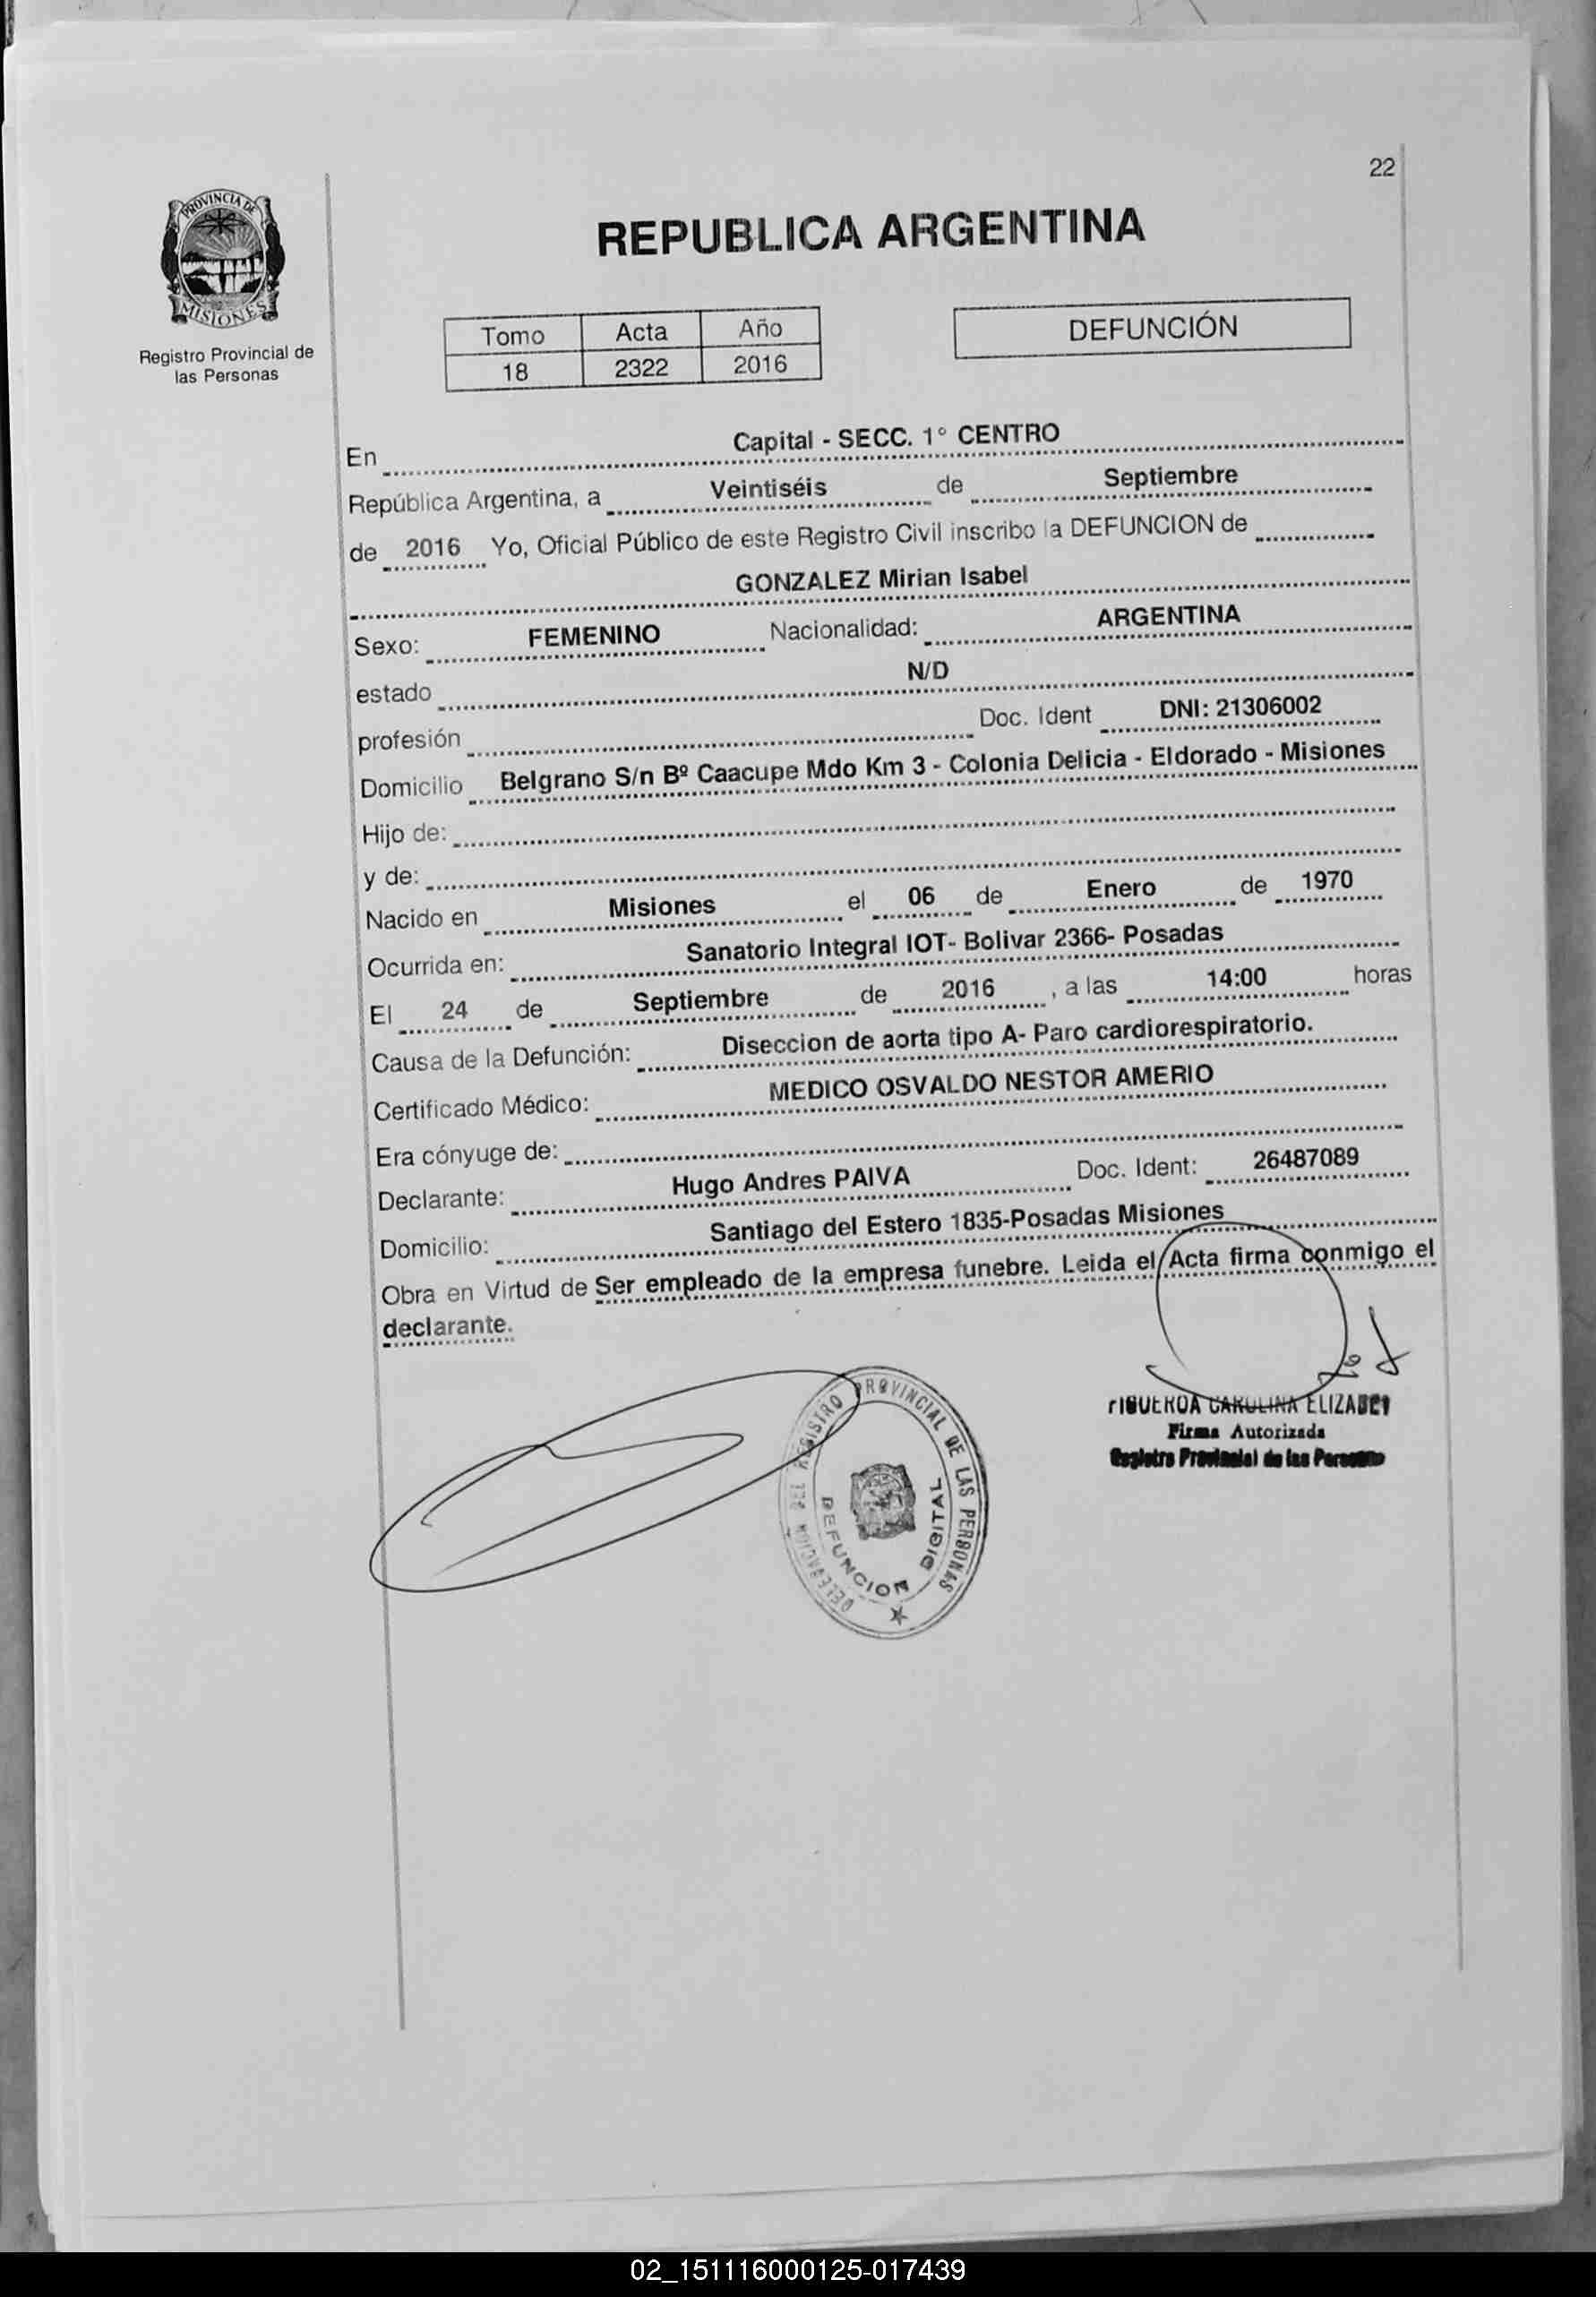 22
PROVINCIA DE
MISIONES
Registro Provincial de
las Personas
REPUBLICA ARGENTINA
Tomo Acta Año
18 2322 2016
DEFUNCIÓN
En Capital - SECC. 1° CENTRO
República Argentina, a Veintiséis de Septiembre
de 2016 Yo, Oficial Público de este Registro Civil inscribo la DEFUNCION de
GONZALEZ Mirian Isabel
Sexo: FEMENINO Nacionalidad: ARGENTINA
estado N/D
profesión Doc. Ident DNI: 21306002
Domicilio Belgrano S/n Bº Caacupe Mdo Km 3 - Colonia Delicia - Eldorado - Misiones
Hijo de:
y de:
Nacido en Misiones el 06 de Enero de 1970
Ocurrida en: Sanatorio Integral IOT- Bolivar 2366- Posadas
El 24 de Septiembre de 2016 , a las 14:00 horas
Causa de la Defunción: Diseccion de aorta tipo A- Paro cardiorespiratorio.
Certificado Médico: MEDICO OSVALDO NESTOR AMERIO
Era cónyuge de:
Declarante: Hugo Andres PAIVA Doc. Ident: 26487089
Domicilio: Santiago del Estero 1835-Posadas Misiones
Obra en Virtud de Ser empleado de la empresa funebre. Leida el Acta firma conmigo el
declarante.
DELEGACION DEL REGISTRO PROVINCIAL DE LAS PERSONAS
DEFUNCION DIGITAL
FIGUEROA CAROLINA
Firma Autorizada
Registro Provincial de las Personas
02_151116000125-017439